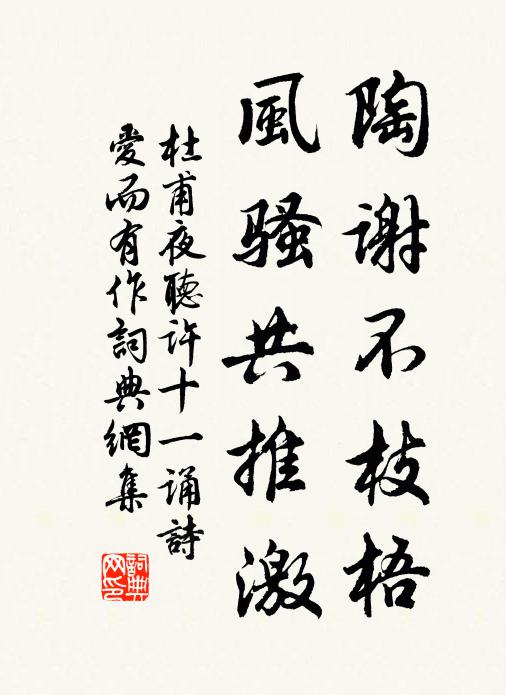 陶謝不枝梧
風騷共推激
杜甫夜聽許十一誦詩
愛而有作詞典網集
詞典
网印